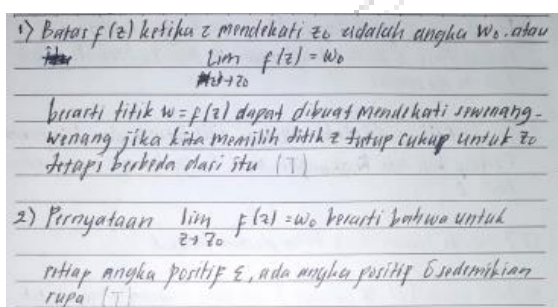 1) Batas f(z) ketika z mendekati z₀ adalah angka W₀. atau
Lim f(z) = W₀
z→z₀
berarti titik w = f(z) dapat dibuat mendekati sewenang-
wenang jika kita memilih titik z tutup cukup untuk z₀
tetapi berbeda dari itu (T)
2) Pernyataan lim f(z) = W₀ berarti bahwa untuk
z→z₀
setiap angka positif ε, ada angka positif δ sedemikian
rupa (T)